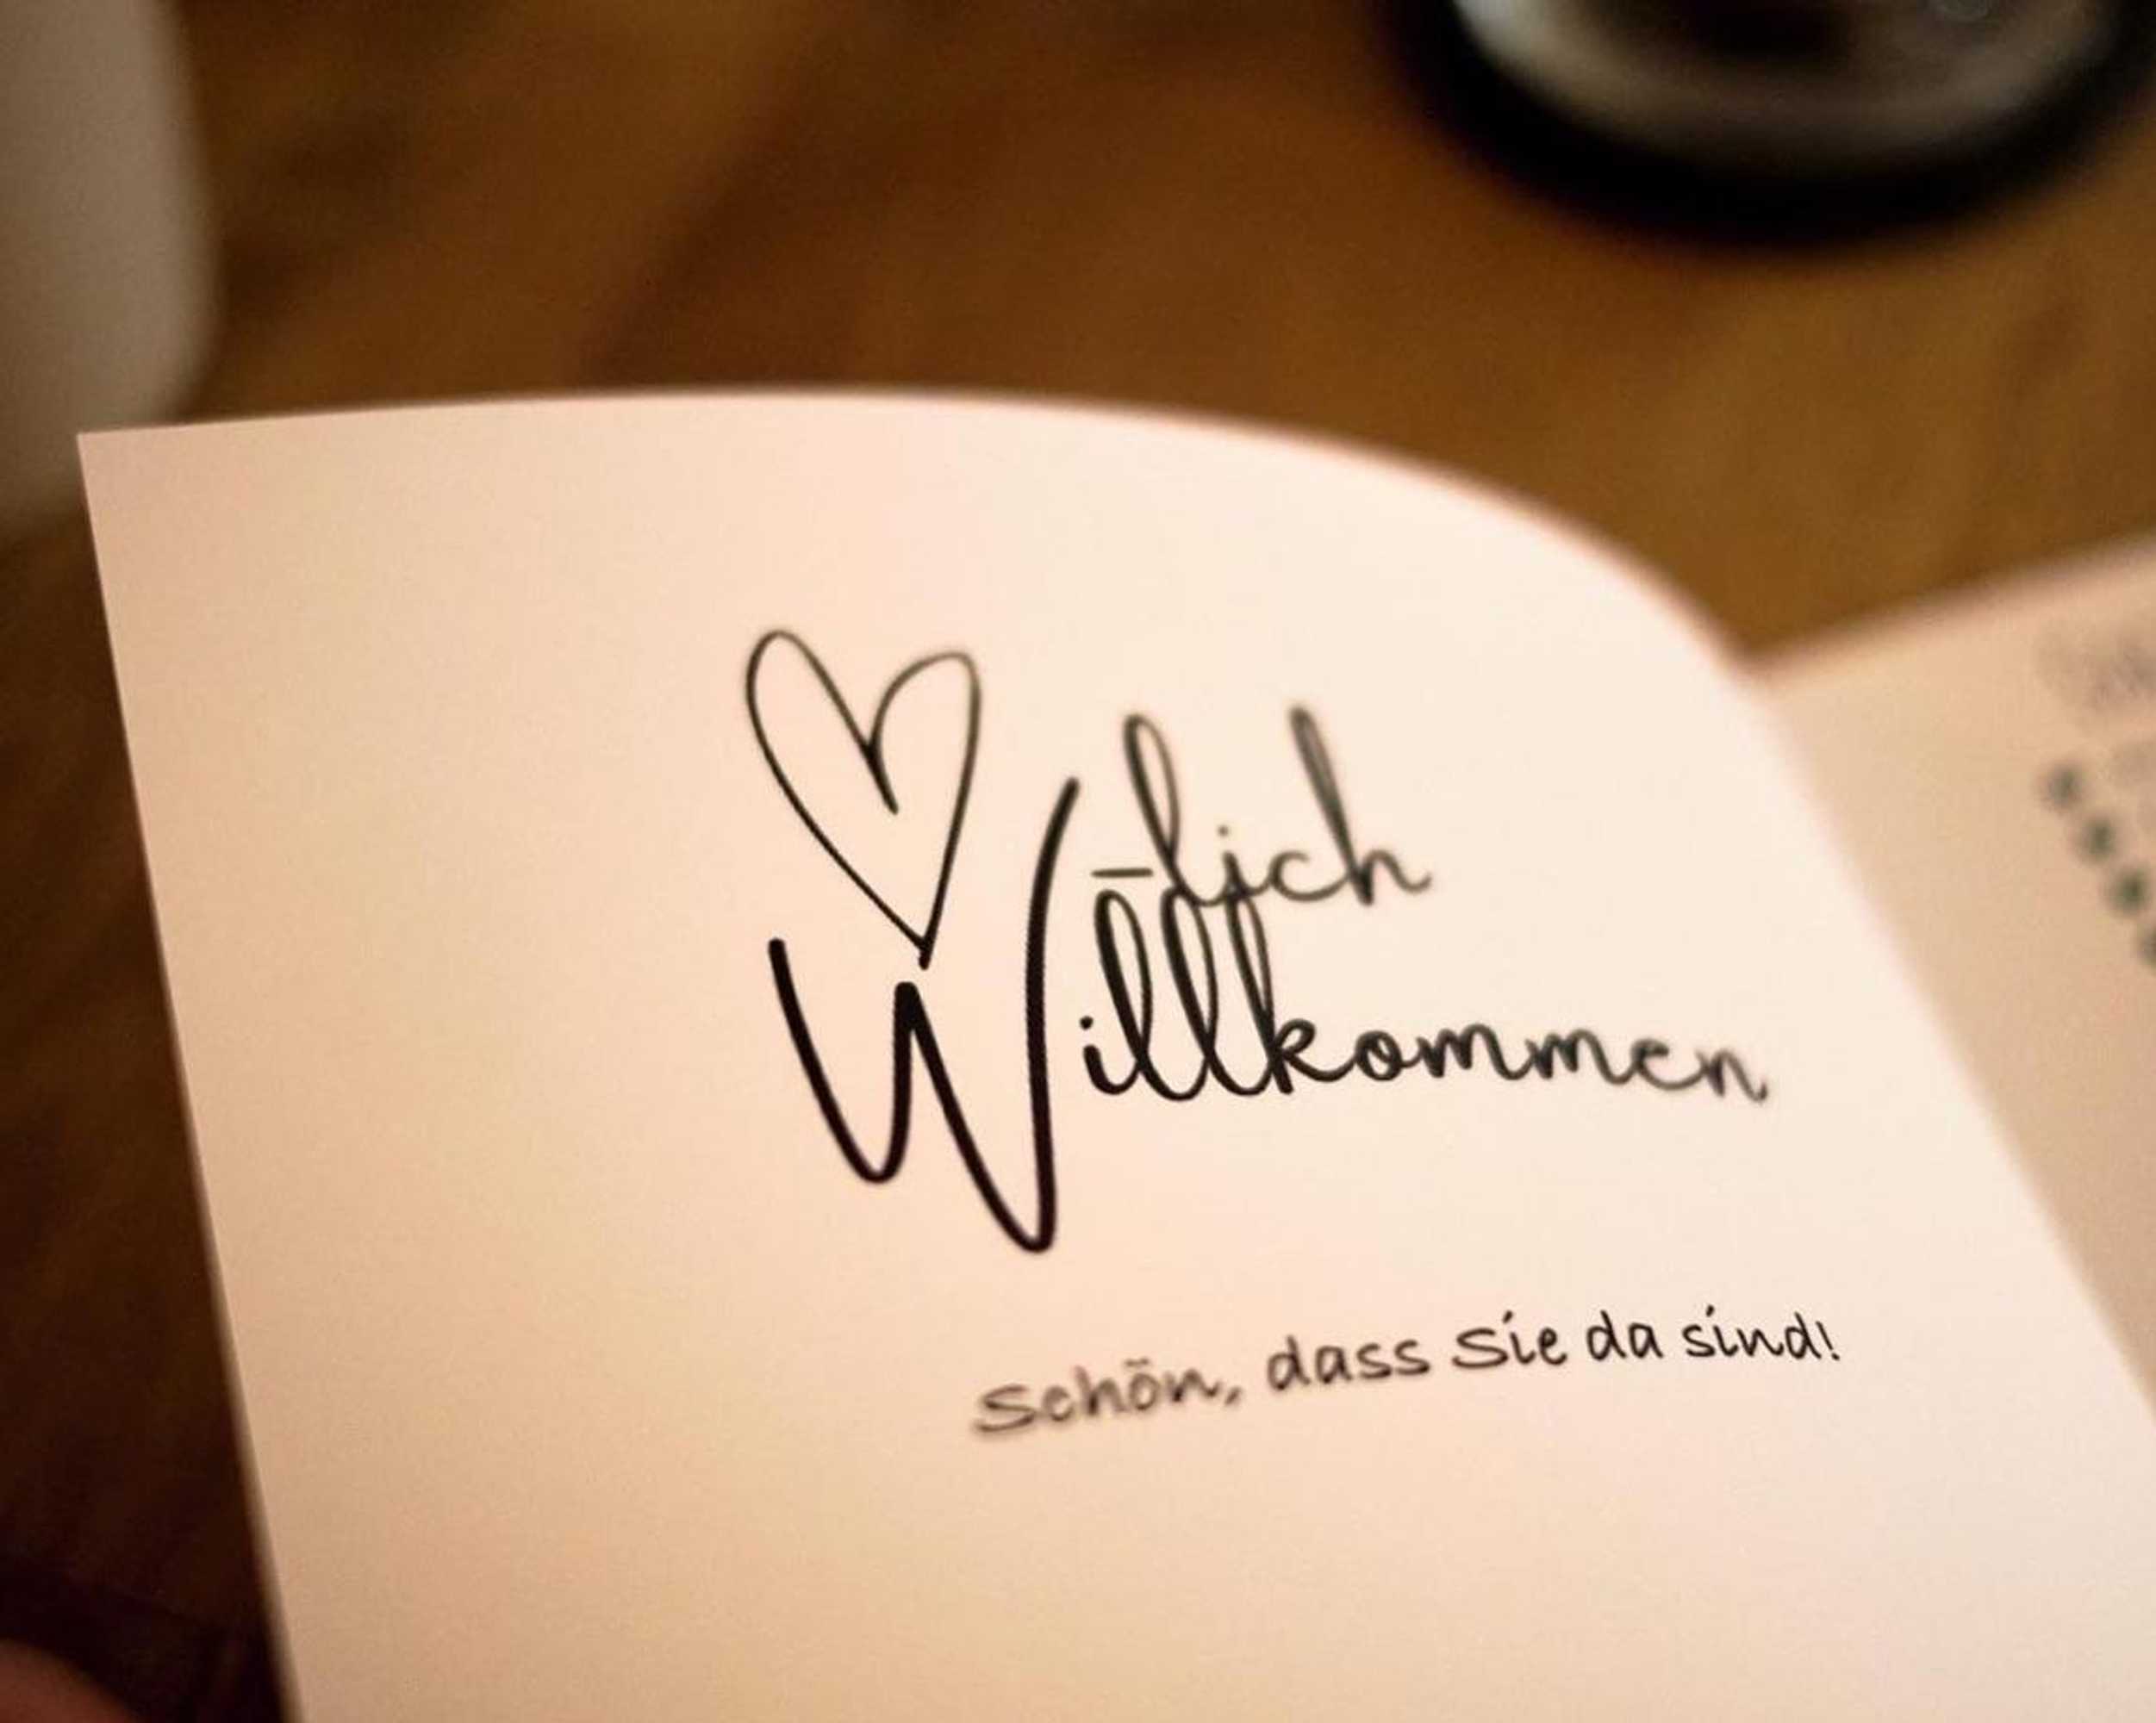 ♡-lich
Willkommen
Schön, dass Sie da sind!